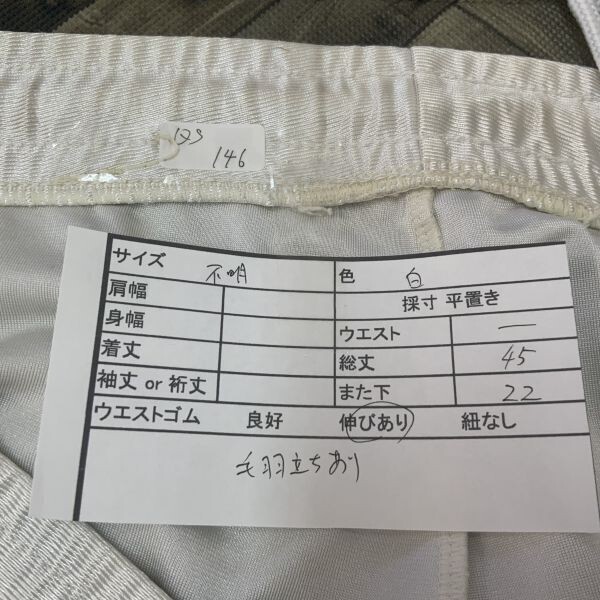 146
サイズ 不明 色 白
肩幅 採寸 平置き
身幅 ウエスト ー
着丈 総丈 45
袖丈 or 裄丈 また下 22
ウエストゴム 良好 伸びあり 紐なし
毛羽立ちあり